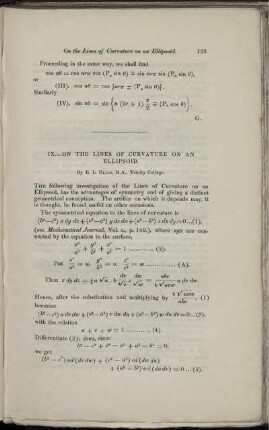 On the Lines of Curvature on an Ellipsoid. 133
Proceeding in the same way, we shall find
or
Similarly
G.
IX.—ON THE LINES OF CURVATURE ON AN
ELLIPSOID.
By R. L. Ellis, B.A., Trinity College.
THE following investigation of the Lines of Curvature on an
Ellipsoid, has the advantages of symmetry and of giving a distinct
geometrical conception. The artifice on which it depends may, it
is thought, be found useful on other occasions.
The symmetrical equation to the lines of curvature is
(b² − c²) x dy dz + (c² − a²) y dz dx + (a² − b²) z dx dy = 0...(1),
(see Mathematical Journal, Vol. where xyz are con-
nected by the equation to the surface,
x²/a² + y²/b² + z²/c² = 1 ............ (2).
Put x²/a² = u, y²/b² = v, z²/c² = w ............ (A).
Hence, after the substitution and multiplying by (1)
becomes
(b² − c²) u dv dw + (c² − a²) v dw du + (a² − b²) w du dv = 0...(3),
with the relation
u + v + w = 1 ............ (4).
Differentiate (3); then, since
b² − c² + c² − a² + a² − b² = 0,
we get
(b² − c²) ud (dv dw) + (c² − a²) vd (dw du)
+ (a² − b²) wd (du dv) = 0 ... (5).